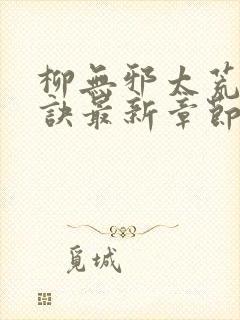 柳無邪太荒
訣最新章節
覓城